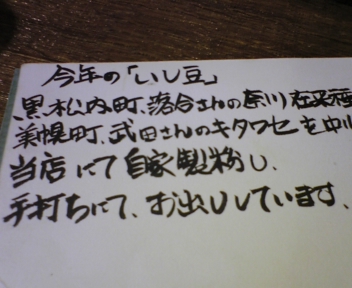 今年の「いし豆」
黒松内町、落合さんの奈川在来種
美幌町、武田さんのキタワセを中心
当店にて自家製粉し、
手打ちにて、お出ししています、